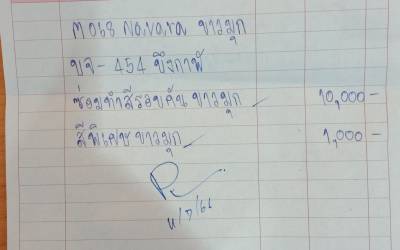 3068 Navara ขาวมุก
บจ-454 บึงกาฬ
ซ่อมทำสีรอบคัน ขาวมุก 10,000-
สีพิเศษ ขาวมุก 1,000-
11/7/66